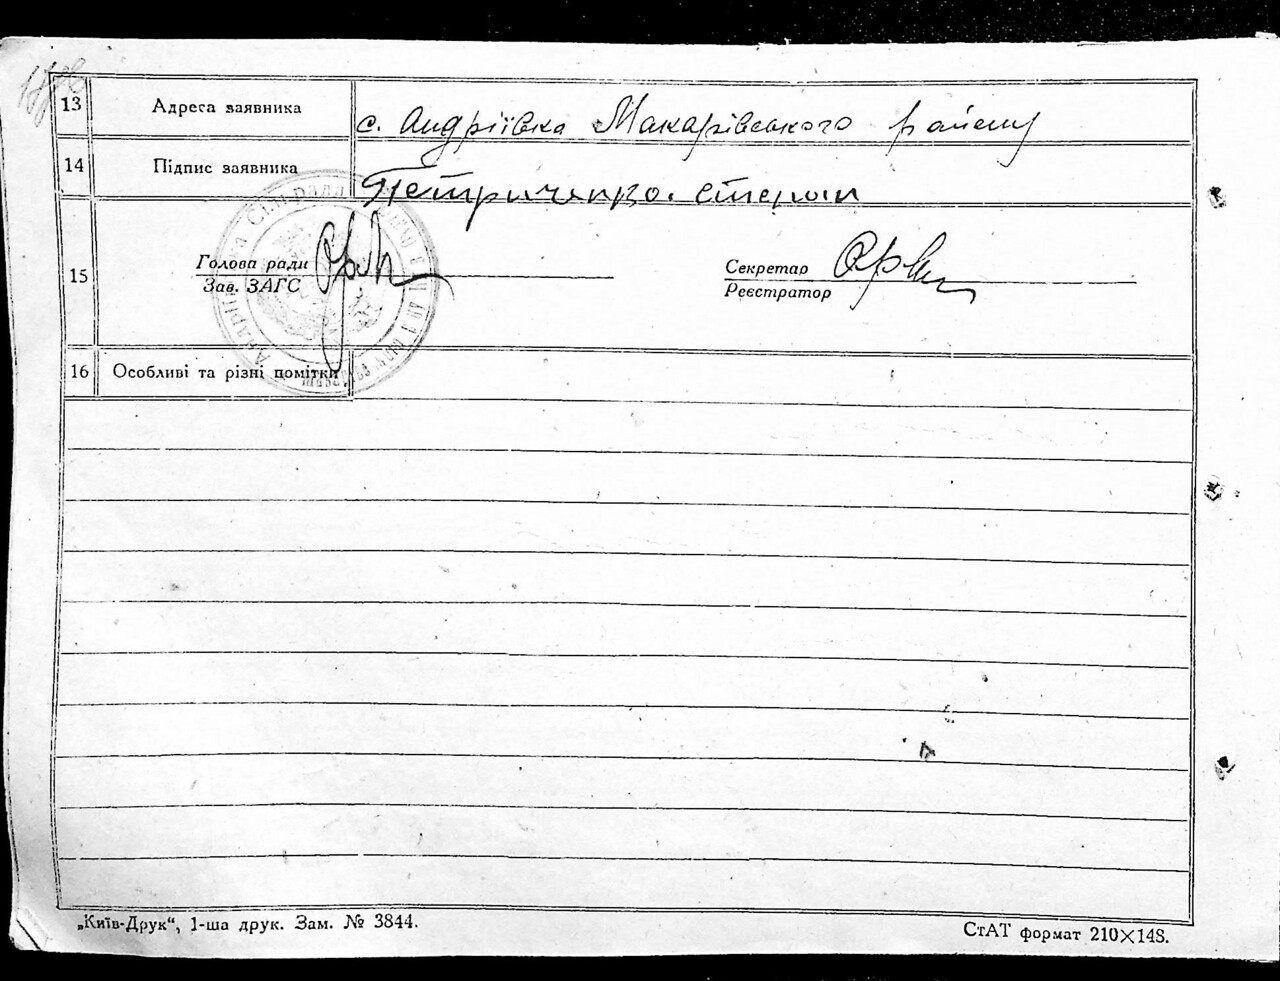 13 Адреса заявника с. Андріївка Макарівського району
14 Підпис заявника Петриченко.
15 Голова ради
Зав. ЗАГС
Секретар
Реєстратор
16 Особливі та різні помітки
„Київ-Друк“, 1-ша друк. Зам. № 3844.
СтАТ формат 210×148.